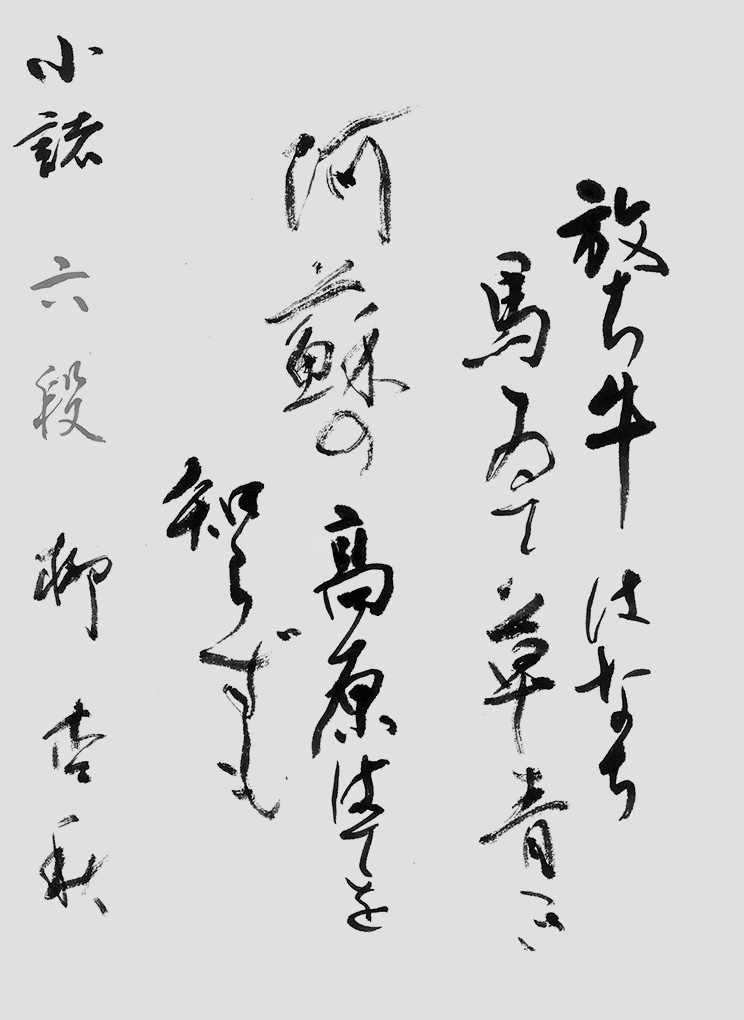 放ち牛はなち
馬ゐて草青き
阿蘇の高原はてを
知らずも
小諸 六段 柳 杏秋